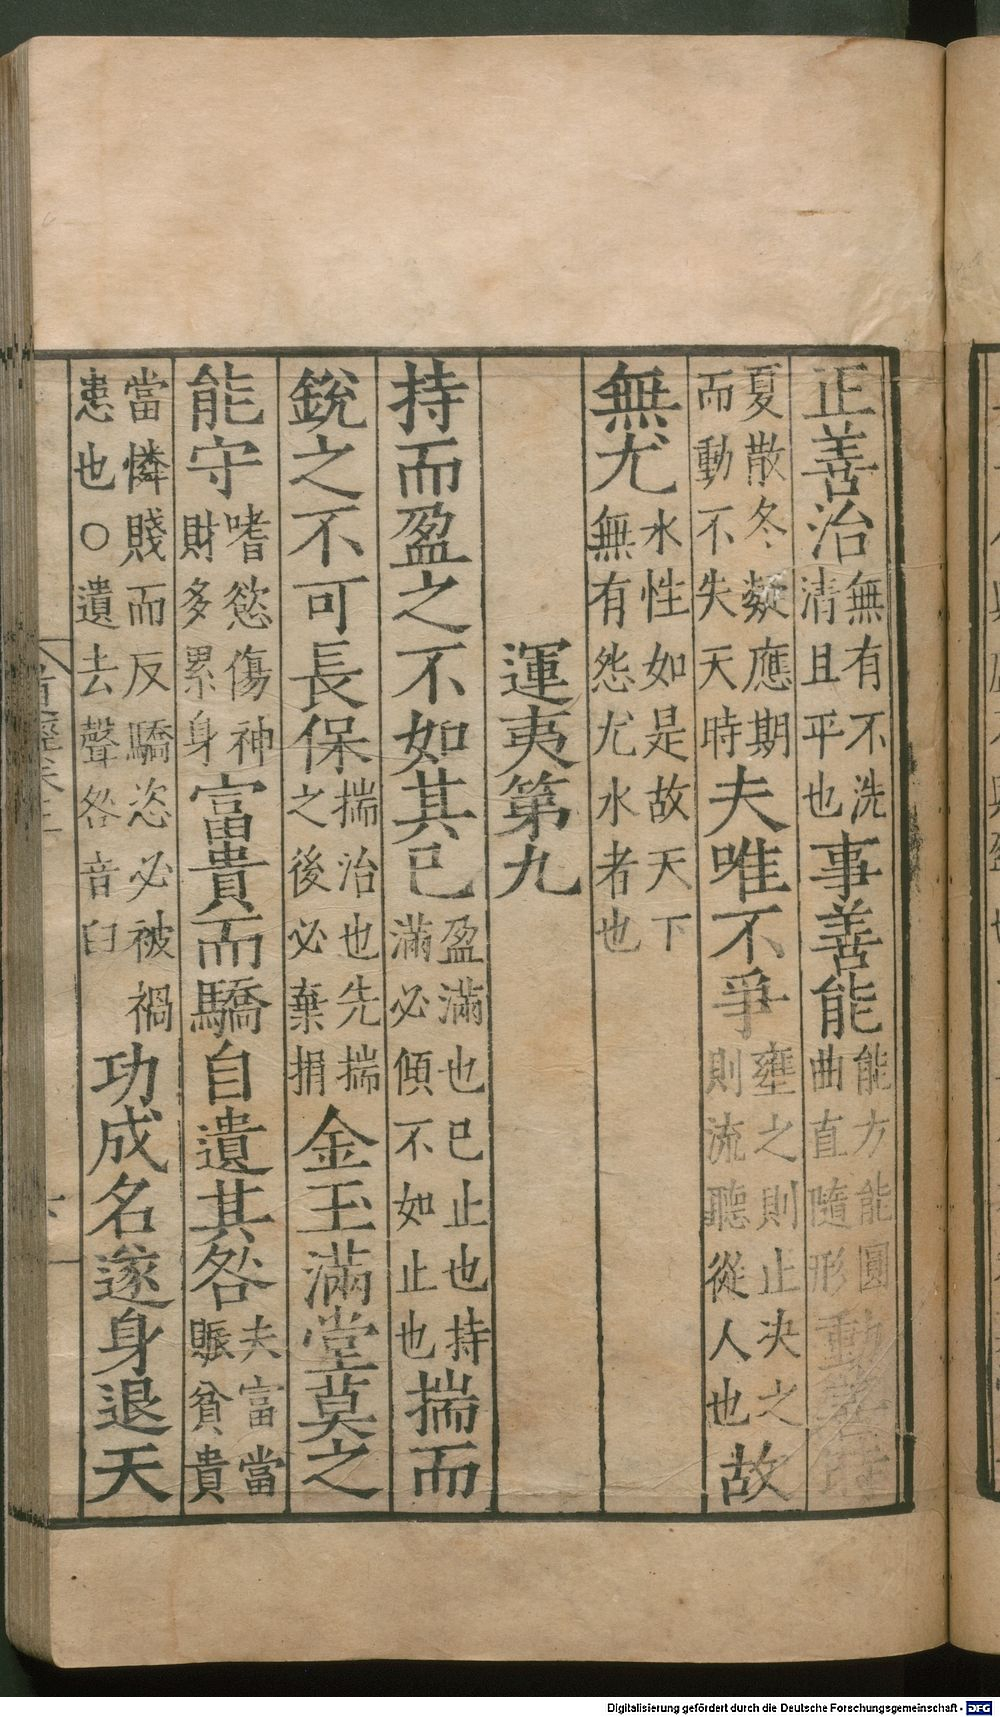 正善治無有不洗清且平也事善能能方能圓曲直隨形動善時
夏散冬凝應期而動不失天時夫唯不爭壅之則止决之則流聽從人也故
無尤水性如是故天下無有怨尤水者也
運夷第九
持而盈之不如其已盈滿也已止也持滿必傾不如止也揣而
銳之不可長保揣治也先揣之後必棄捐金玉滿堂莫之
能守嗜慾傷神財多累身富貴而驕自遺其咎夫富當賑貧貴
當憐賤而反驕恣必被禍患也○遺去聲咎音臼功成名遂身退天
Digitalisierung gefördert durch die Deutsche Forschungsgemeinschaft - DFG